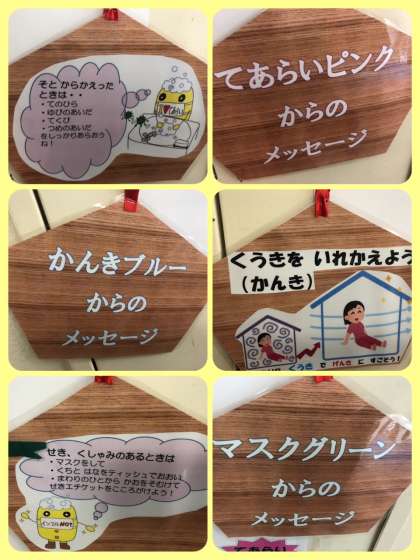 そと からかえった
ときは・・
・てのひら
・ゆびのあいだ
・てくび
・つめのあいだ
をしっかりあらおう
ね！
てあらいピンク
からの
メッセージ
かんきブルー
からの
メッセージ
くうきを いれかえよう
（かんき）
くうき で げんき に すごそう！
せき、くしゃみのあるときは
・マスクをして
・くちと はなをティッシュでおおい
・まわりのひとから かおをそむけて
せきエチケットをこころがけよう！
インフルNOT
マスクグリーン
からの
メッセージ
てあらい